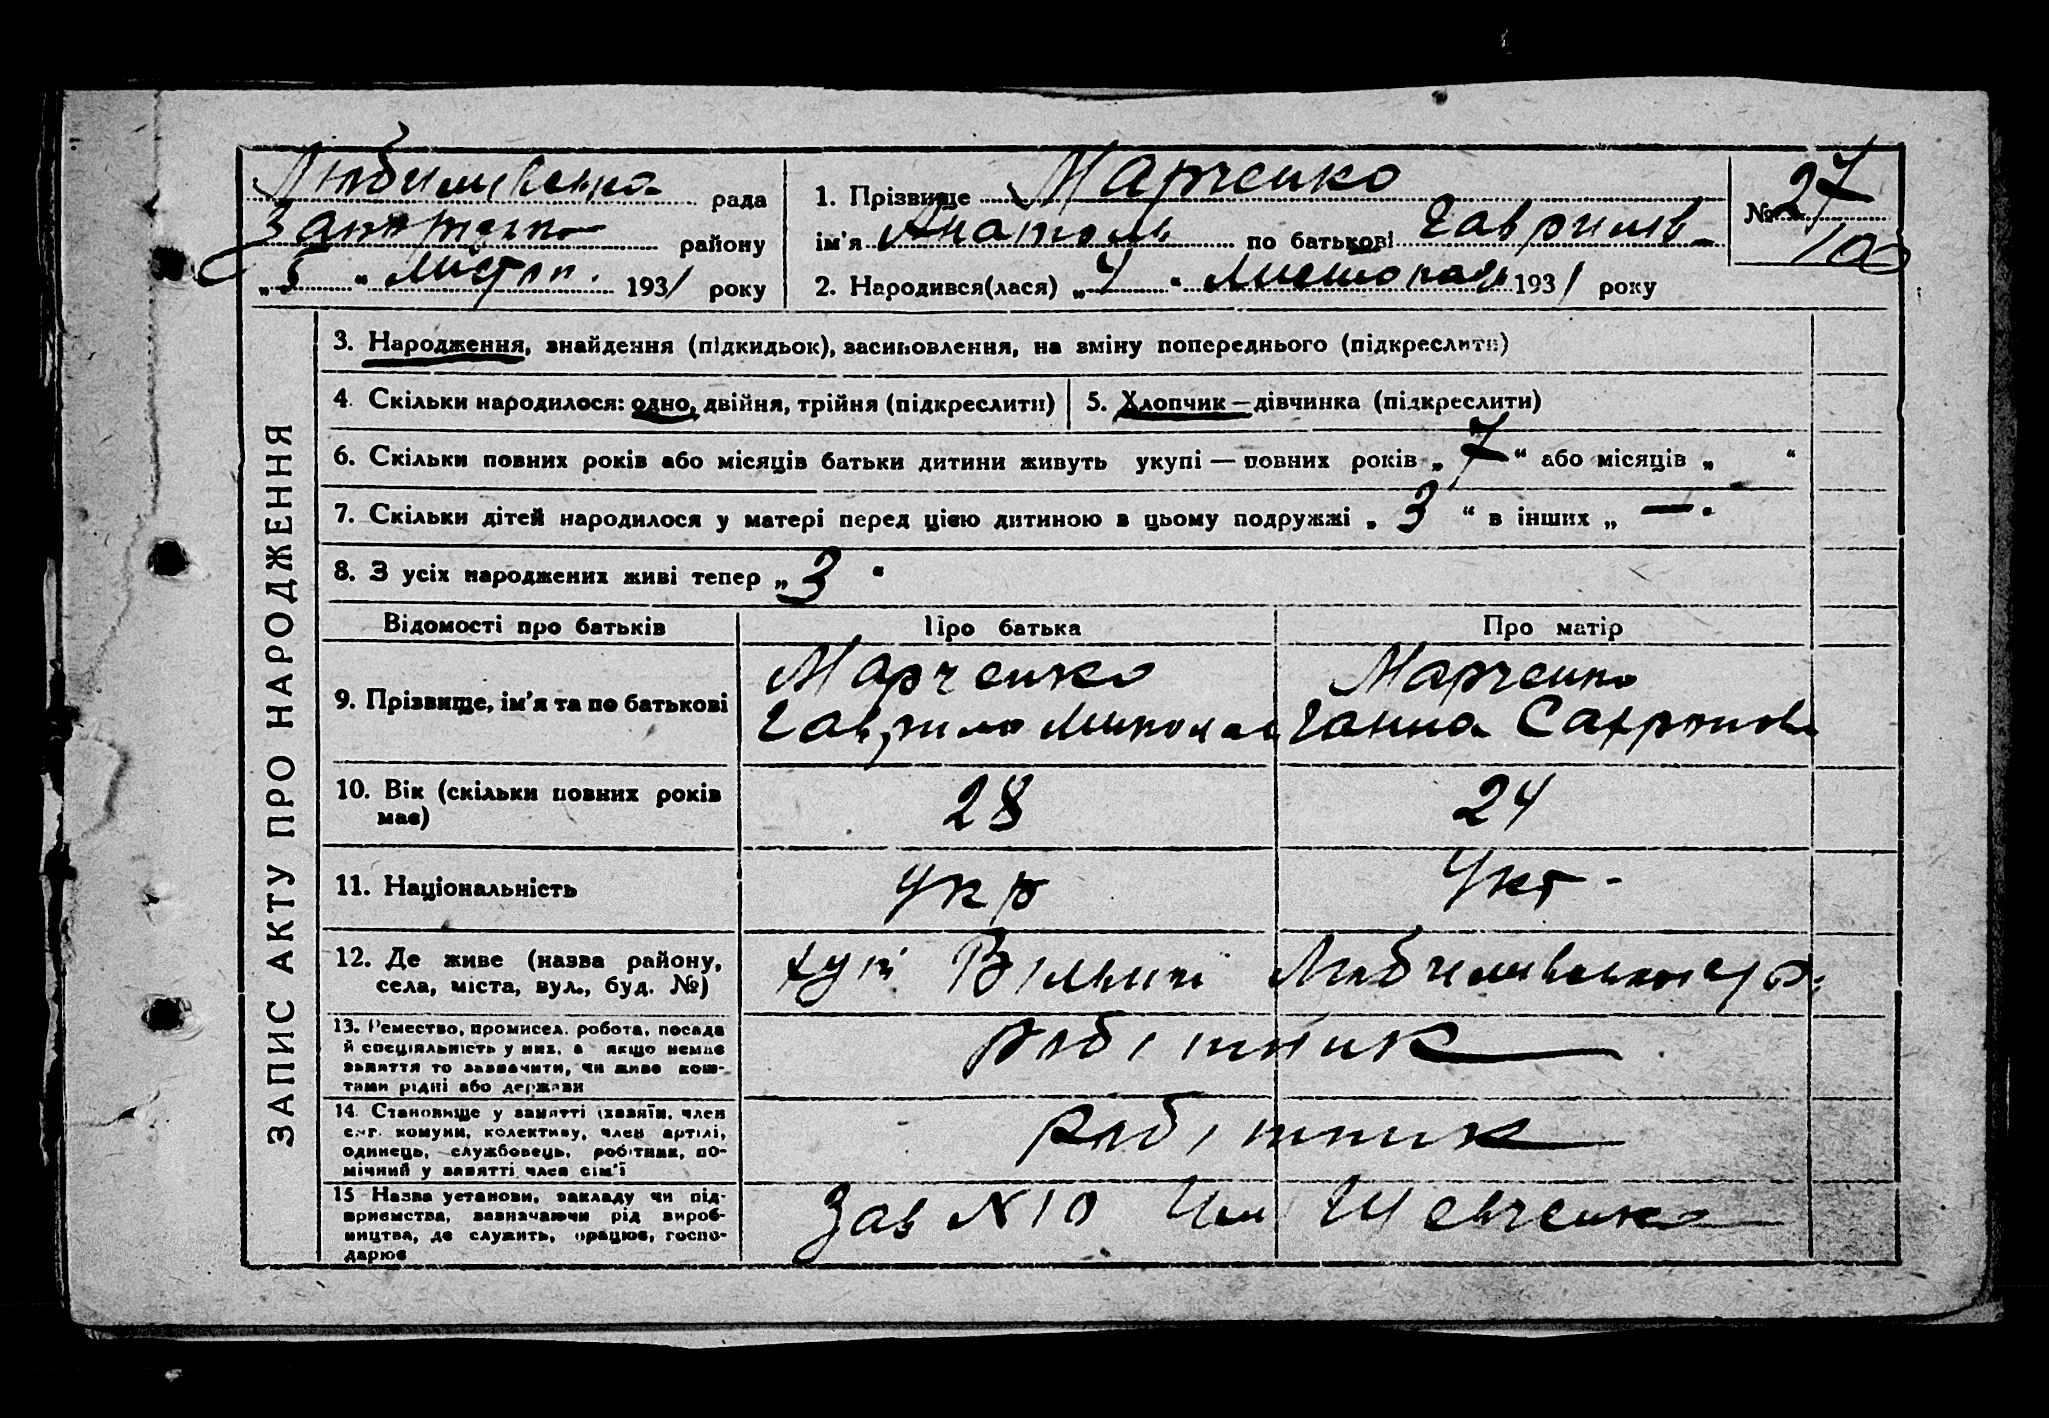 Любимівська рада
району
„ 5 “ Листоп. 1931 року
1. Прізвище Марченко
ім'я Анатоль по батькові Гаврилів
2. Народився(лася) „ 4 “ Листопада 1931 року
№ 27
ЗАПИС АКТУ ПРО НАРОДЖЕННЯ
3. Народження, знайдення (підкидьок), засиновлення, на зміну попереднього (підкреслити)
4. Скільки народилося: одно, двійня, трійня (підкреслити)
5. Хлопчик — дівчинка (підкреслити)
6. Скільки повних років або місяців батьки дитини живуть укупі — повних років „ 7 “ або місяців „ “
7. Скільки дітей народилося у матері перед цією дитиною в цьому подружжі „ 3 “ в інших „ —
8. З усіх народжених живі тепер „ 3 “
Відомості про батьків
Про батька
Про матір
9. Прізвище, ім'я та по батькові
Марченко
Гаврило Микола
Марченко
Ганна Сафронова
10. Вік (скільки повних років
має)
28
24
11. Національність
Укр
Укр
12. Де живе (назва району,
села, міста, вул., буд. №)
хут Вільний Любимівської
13. Ремество, промисел. робота, посада
й спеціяльність у них, а якщо немає
заняття то зазначити, чи живе кош-
тами рідні або держави
робітник
14. Становище у занятті (хазяїн, член
с.-г. комуни, колективу, член артілі,
одинець, службовець, робітник, по-
мічний у занятті член сім'ї
робітник
15 Назва установи, закладу чи під-
приємства, зазначаючи рід вироб-
ництва, де служить, працює, госпо-
дарює
Зав N 10 Им Шевченко